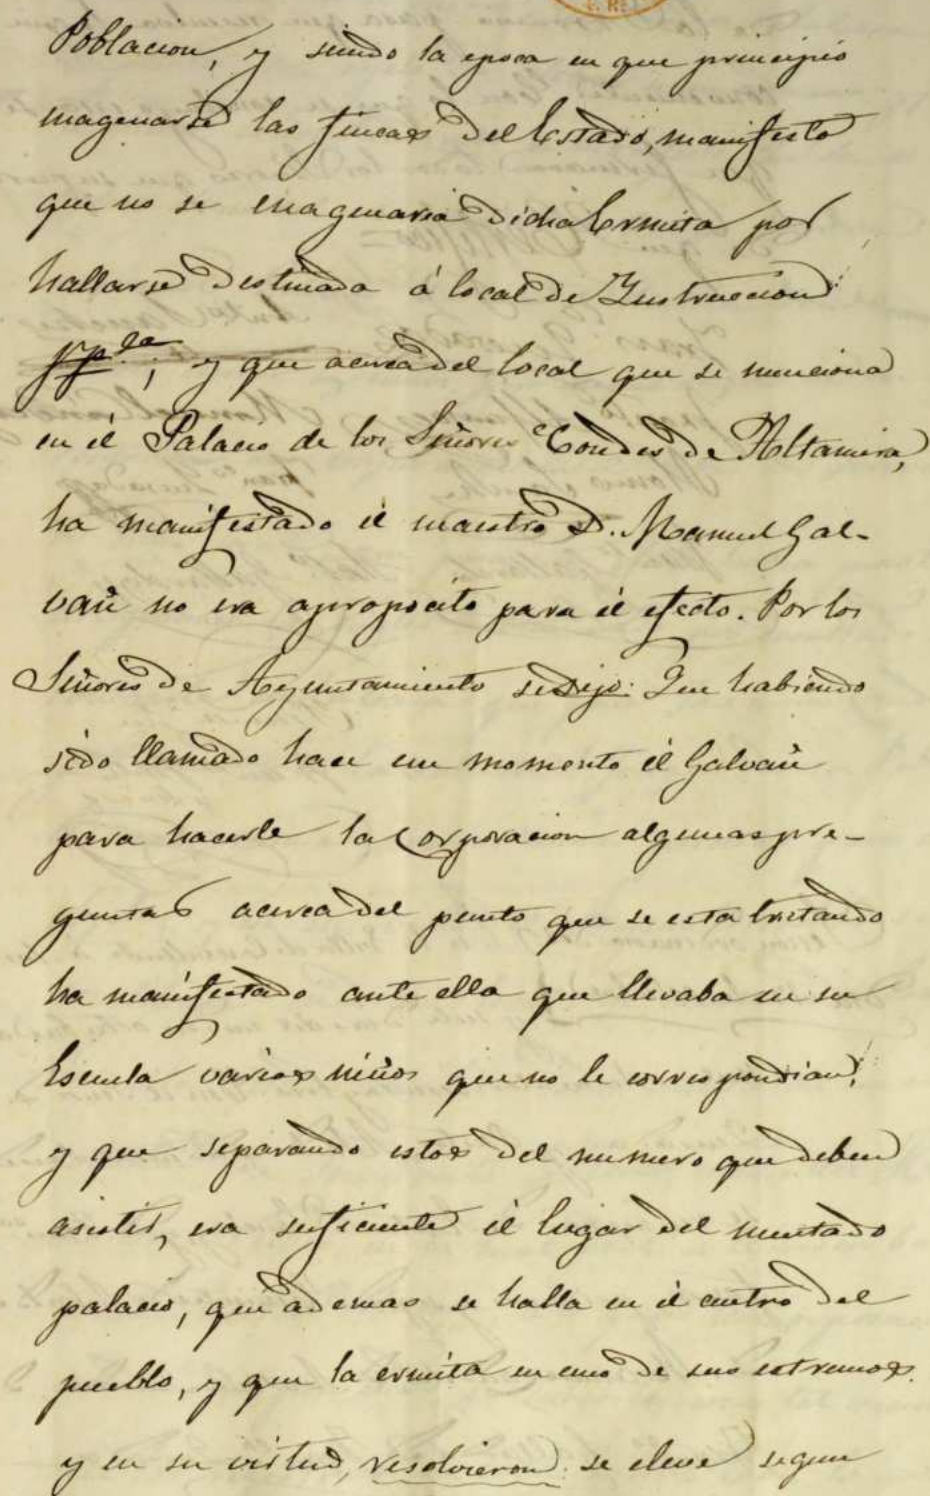 Poblacion, y siendo la epoca en que principió
enagenarse las fincas del Estado, manifestó
que no se enagenaria dicha Ermita por
hallarse destinada á local de Instruccion
y que acerca del local que se menciona
en él Palacio de los Señores Condes de Altamira,
ha manifestado él maestro D. Manuel Gal-
vañ no era apropocito para él efecto. Por los
Señores de Ayuntamiento se dijo: Que habiendo
sido llamado hace un momento él Galvañ
para hacerle la Corporacion algunas pre-
guntas acerca del punto que se esta tratando
ha manifestado ante ella que llevaba en su
Escuela varios niños que no le correspondian,
y que separando estos del numero que deben
asistir, era suficiente él lugar del mentado
palacio, que ademas se halla en él centro del
pueblo, y que la ermita en uno de sus estremos.
y en su virtud, resolvieron se eleve segun